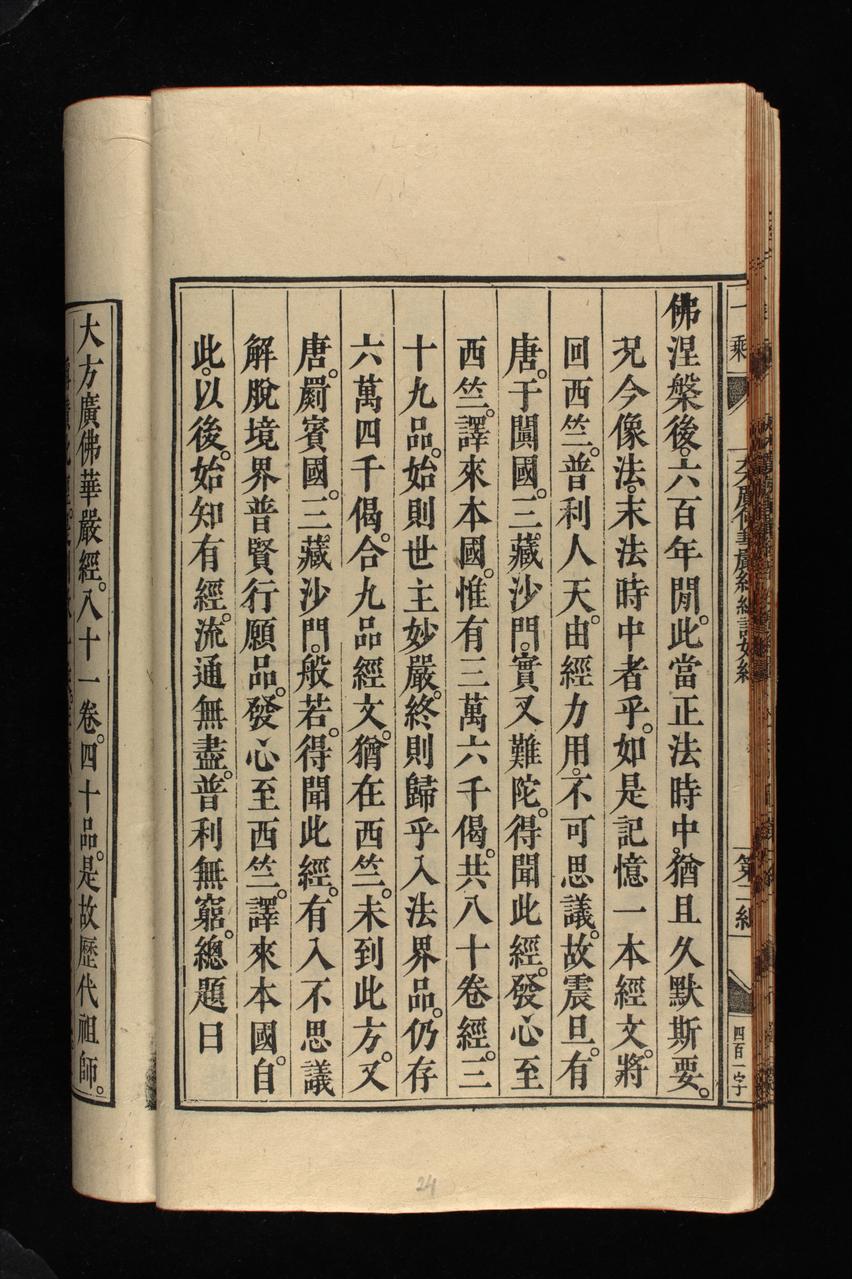 佛涅槃後。六百年閒。此當正法時中。猶且久默斯要。
況今像法。末法時中者乎。如是記憶一本經文。將
回西竺。普利人天。由經力用。不可思議。故震旦。有
唐。于闐國。三藏沙門。實叉難陀。得聞此經。發心至
西竺。譯來本國。惟有三萬六千偈。共八十卷經。三
十九品。始則世主妙嚴。終則歸乎入法界品。仍存
六萬四千偈。合九品經文。猶在西竺。未到此方。又
唐。罽賓國。三藏沙門。般若。得聞此經。有入不思議
解脫境界普賢行願品。發心至西竺。譯來本國。自
此。以後。始知有經。流通無盡。普利無窮。總題曰
大方廣佛華嚴經。八十一卷。四十品。是故歷代祖師。
一乘
大方廣佛華嚴經綸
第二
四百一字
24